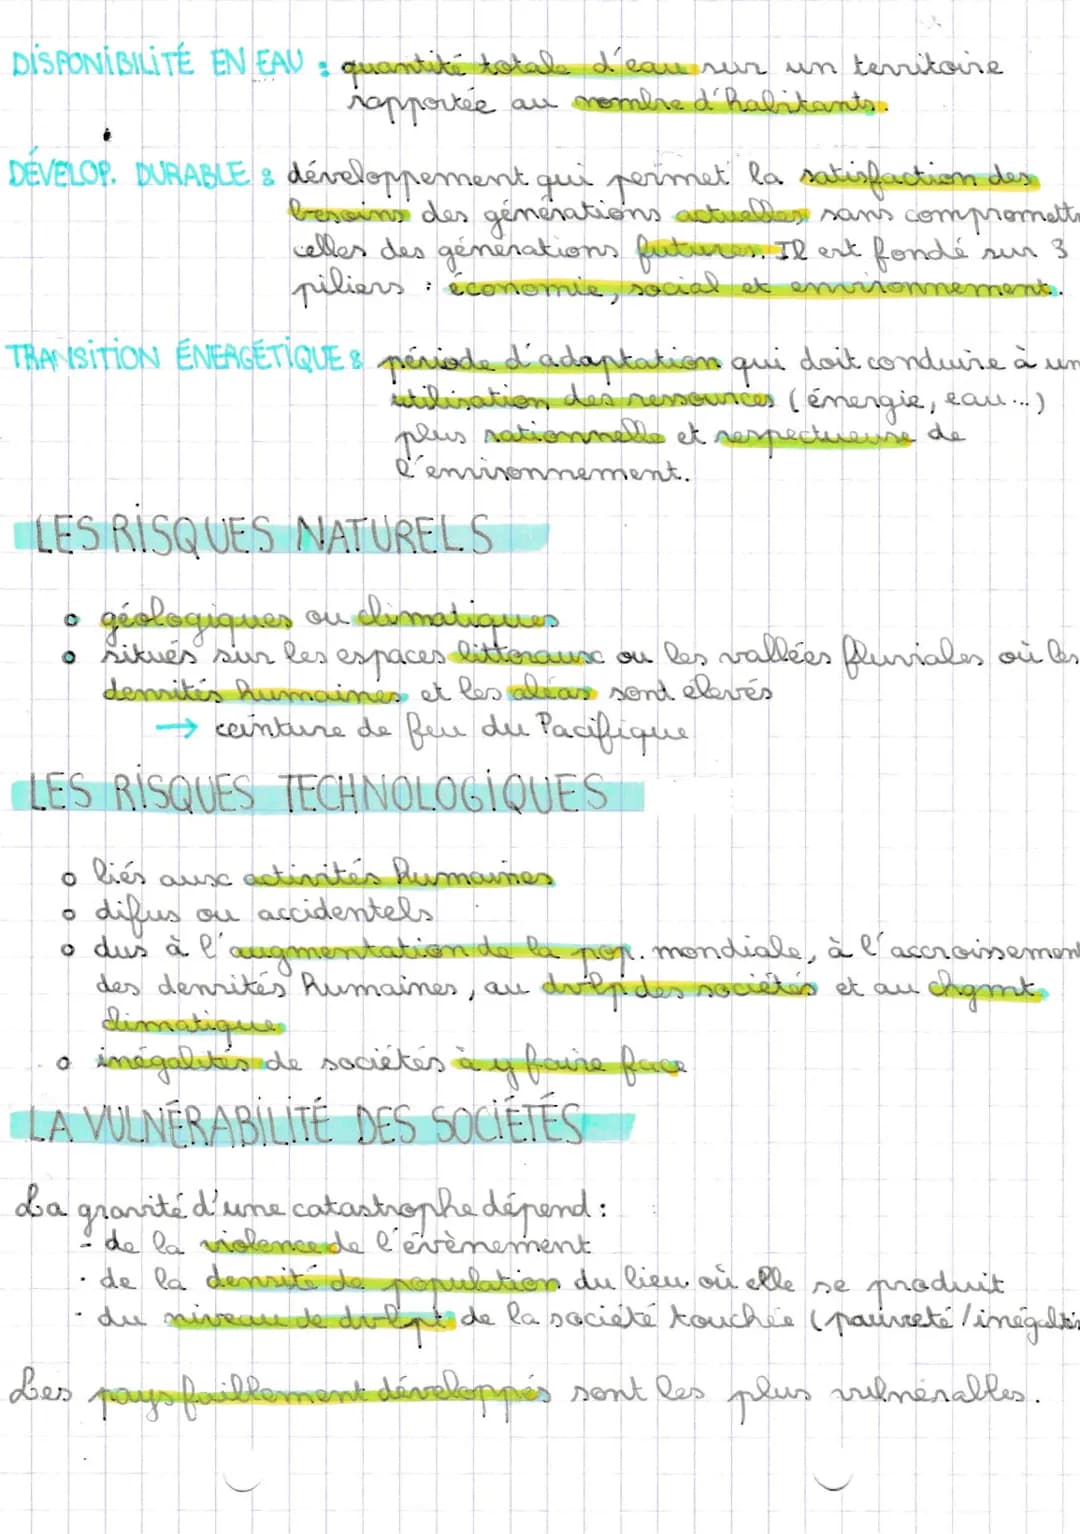 DISPONIBILITÉ EN EAU : quantité totale d'eau sur un territoire
rapportée au nombre d'habitants.
DÉVELOP. DURABLE : développement qui permet la satisfaction des
besoins des générations actuelles sans compromettr
celles des générations futures. Il est fondé sur 3
piliers : économie, social et environnement.
TRANSITION ÉNERGÉTIQUE : période d'adaptation qui doit conduire à un
utilisation des ressources (énergie, eau...)
plus rationnelle et respectueuse de
l'environnement.
LES RISQUES NATURELS
o géologiques ou climatiques
o situés sur les espaces littoraux ou les vallées fluviales où les
densités humaines et les aléas sont élevés
→ ceinture de feu du Pacifique
LES RISQUES TECHNOLOGIQUES
o liés aux activités humaines
o difus ou accidentels
o dus à l'augmentation de la pop. mondiale, à l'accroissement
des densités humaines, au dvlp des sociétés et au chgmt
climatique
o inégalités de sociétés à y faire face
LA VULNÉRABILITÉ DES SOCIÉTÉS
La gravité d'une catastrophe dépend :
- de la violence de l'évènement
- de la densité de population du lieu où elle se produit
- du niveau de dvlpt de la société touchée (pauvreté/inégalités
Les pays faiblement développés sont les plus vulnérables.